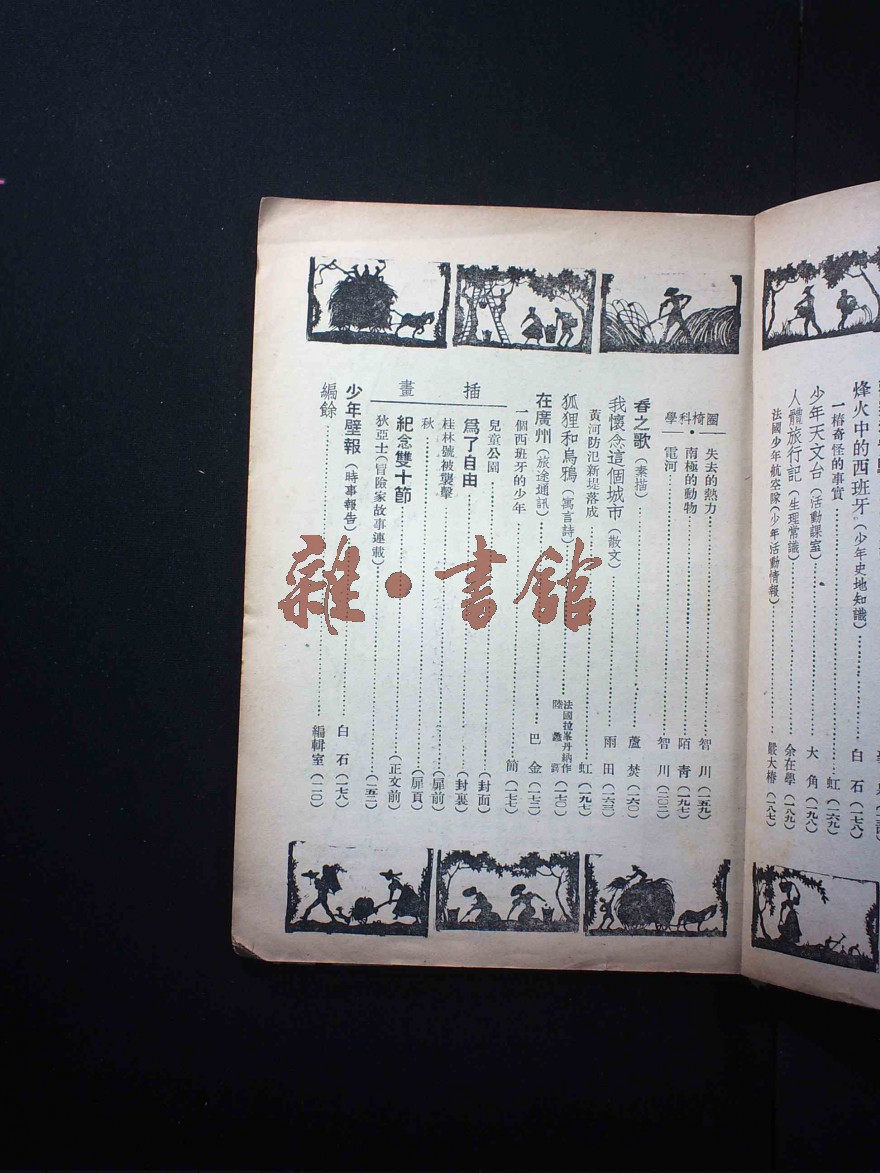 烽火中的西班牙(少年史地知識)……白石(一七八)
一樁奇怪的事實……虹(一六九)
少年天文台(活動課室)……大角(一九八)
人體旅行記(生理常識)……余在學(一八九)
法國少年航空隊(少年活動情報)……嚴大椿(一八七)
圈椅科學
失去的熱力……智川(一五九)
南極的動物……陌青(一九七)
電河……智川(二〇三)
春之歌(素描)……蘆焚(一六〇)
我懷念這個城市(散文)……雨田(一六三)
黃河防汜新堤落成……虹(一九七)
狐狸和烏鴉(寓言詩)……法國拉峯丹納作 陸蠡(一七〇)
在廣州(旅途通訊)……巴金(一七二)
一個西班牙的少年……簡(一七七)
插畫
兒童公園……(封面)
爲了自由……(封裏)
桂林號被襲擊……(扉前)
秋……(扉頁)
紀念雙十節……(正文前)
狄亞士(冒險家故事連載)……(一五二)
少年壁報(時事報告)……白石(一七八)
編餘……編輯室(二一〇)
雜·書館